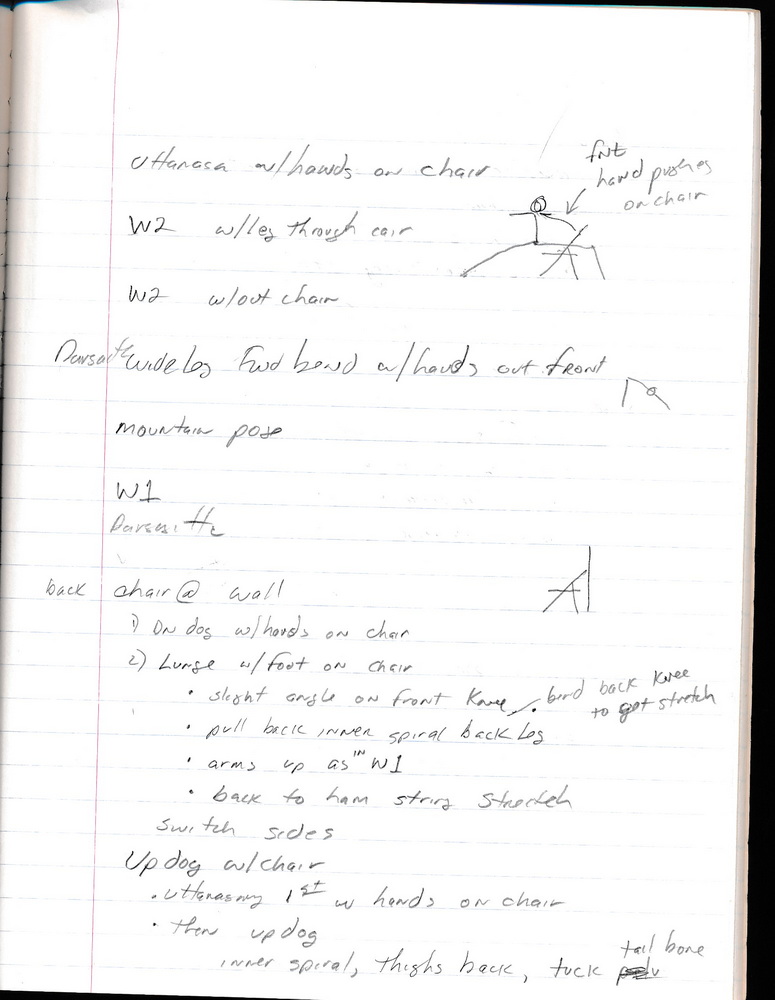 Uttanasa w/hands on chair
fnt
hand pushes
on chair
W2 w/leg through cair
W2 w/out chair
wide leg Fwd bend w/hands out front
mountain pose
W1
back chair @ wall
1) Dn dog w/hands on chair
2) Lunge w/foot on chair
• slight angle on front knee
• bend back knee
to get stretch
• pull back inner spiral back leg
• arms up as in W1
• back to ham string stretch
switch sides
Up dog w/chair
• 1st w hands on chair
• then up dog
inner spiral, thighs back, tuck tail bone